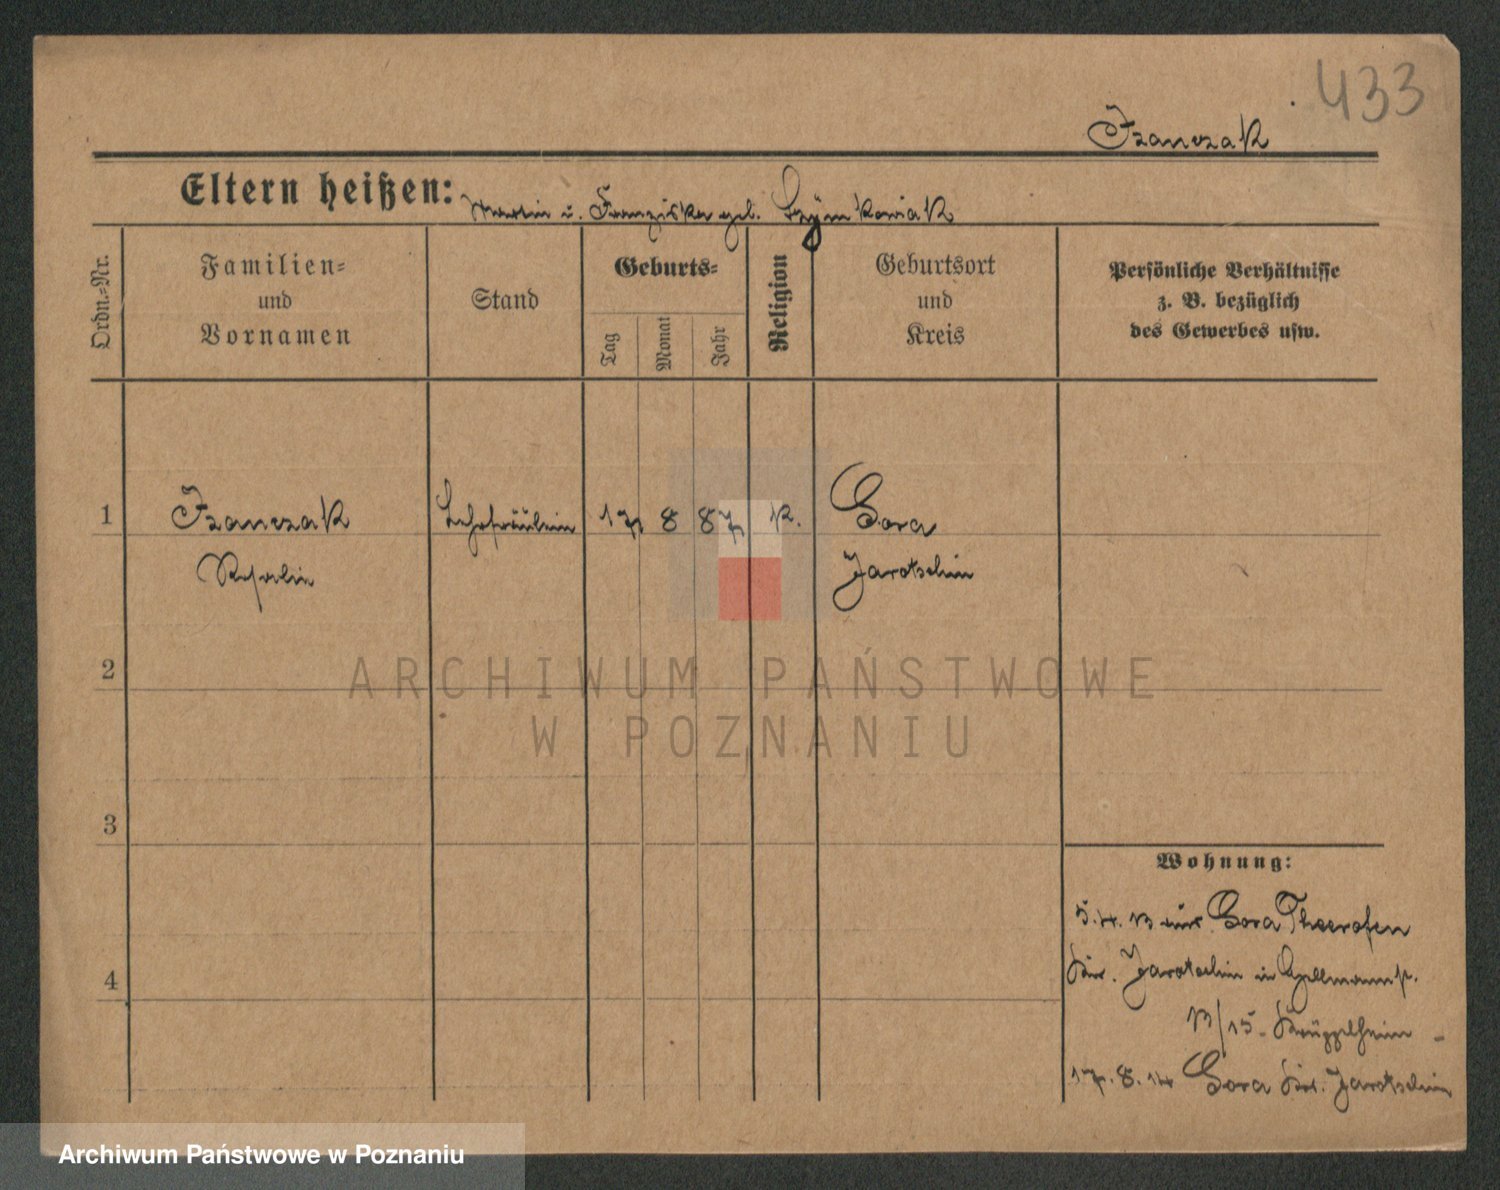 433
Franczak
Eltern heißen: Martin u. Franziska geb. Szymkowiak
Ordn.-Nr.
Familien-
und
Vornamen
Stand
Geburts-
Tag
Monat
Jahr
Religion
Geburtsort
und
Kreis
Persönliche Verhältnisse
z. B. bezüglich
des Gewerbes usw.
1 Franczak Lehrfräulein 17 8 87 k. Gora
Jarotschin
2
3
4
Wohnung:
5.4.13 aus Gora
Kr. Jarotschin in
13/15 Krüppelheim
17.8.14 Gora Kr. Jarotschin
ARCHIWUM PAŃSTWOWE
W POZNANIU
Archiwum Państwowe w Poznaniu